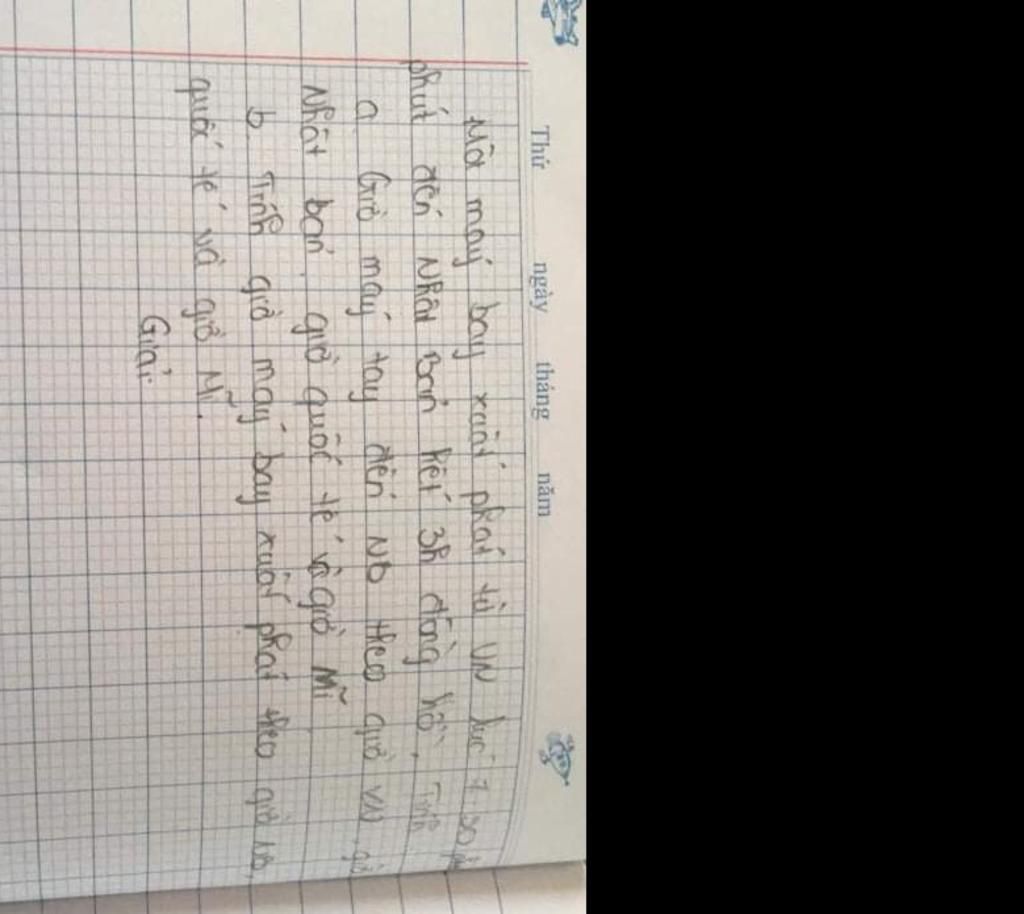 Thứ ngày tháng năm
Một máy bay xuất phát từ VN lúc 7.30
phút đến Nhật Bản hết 3h đồng hồ, Tính
a Giờ máy tay đến NB theo giờ VN, giờ
Nhật bản, giờ quốc tế và giờ Mĩ
b. Tính giờ máy bay xuất phát theo giờ NB,
quốc tế và giờ Mĩ.
Giải